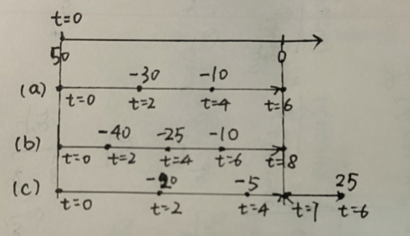 t=0
50 0
(a) -30 -10
t=0 t=2 t=4 t=6
(b) -40 -25 -10
t=0 t=2 t=4 t=6 t=8
(c) -20 -5 25
t=0 t=2 t=4 t=7 t=6